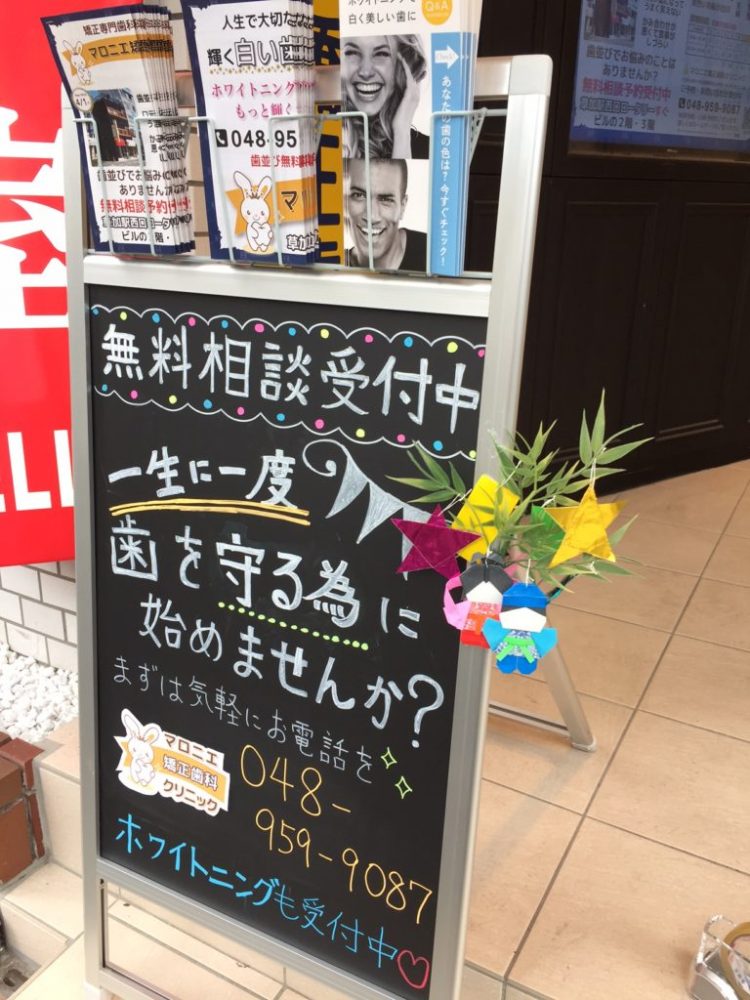 矯正専門歯科
マロニエ矯
歯並びでお悩みのことは
ありませんか?
無料相談予約受付中
草加駅西口ロータリー
ビルの2階・
人生で大切な
輝く白い歯
ホワイトニング
もっと輝く
048-95
歯並び無料
マロ
草加
ホワイトニングで
白く美しい歯に
Q&A
Check!
あなたの歯の色は?今すぐチェック!
歯並びでお悩みのことは
ありませんか?
無料相談予約受付中
草加駅西口ロータリーすぐ
ビルの2階・3階
048-959-9087
無料相談受付中
一生に一度
歯を守る為に
始めませんか?
まずは気軽にお電話を
マロニエ
矯正歯科
クリニック
048-
959-9087
ホワイトニングも受付中